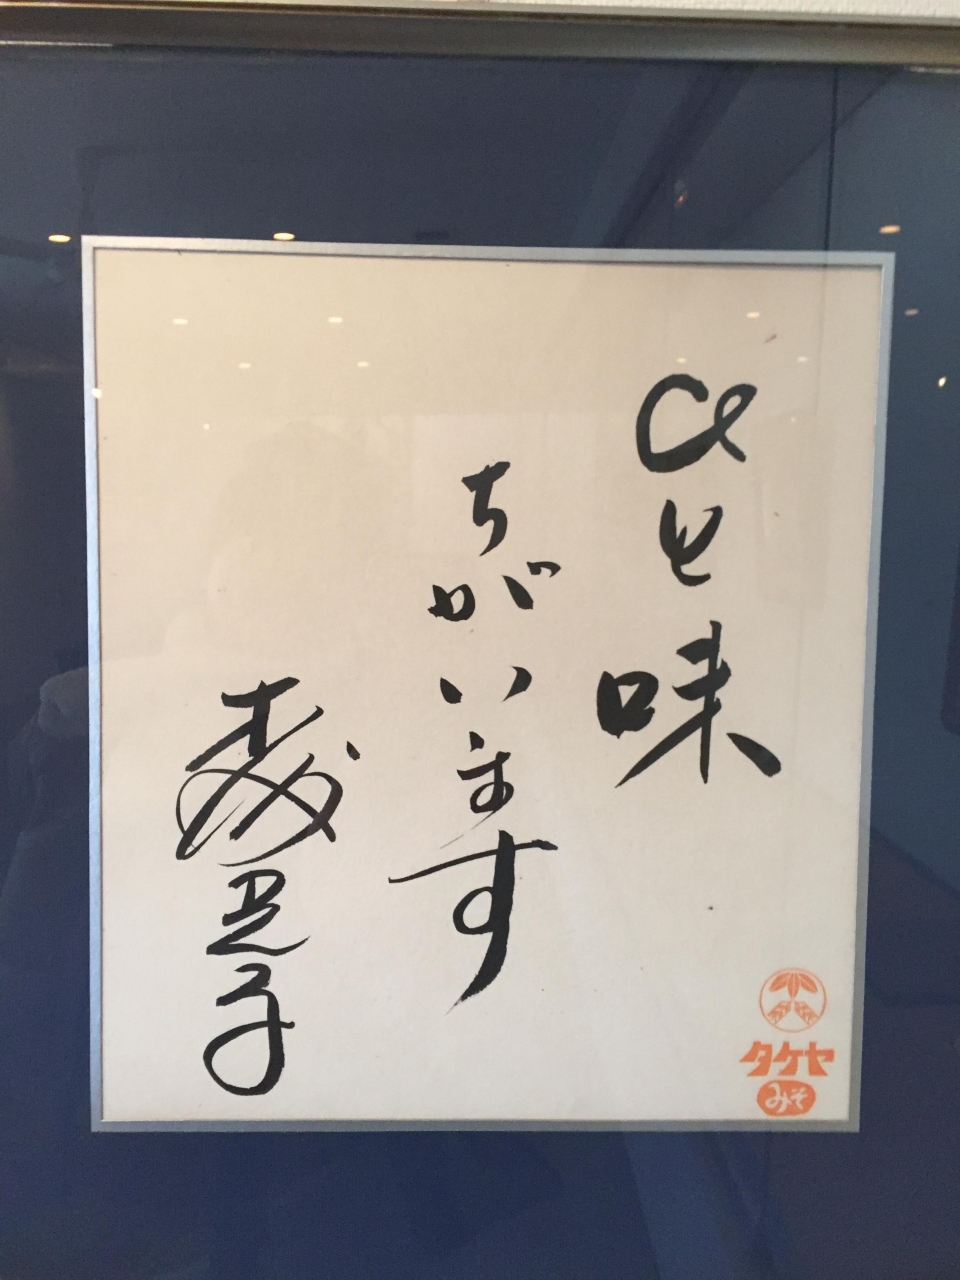 ひと味
ちがいます
森光子
タケヤ
みそ